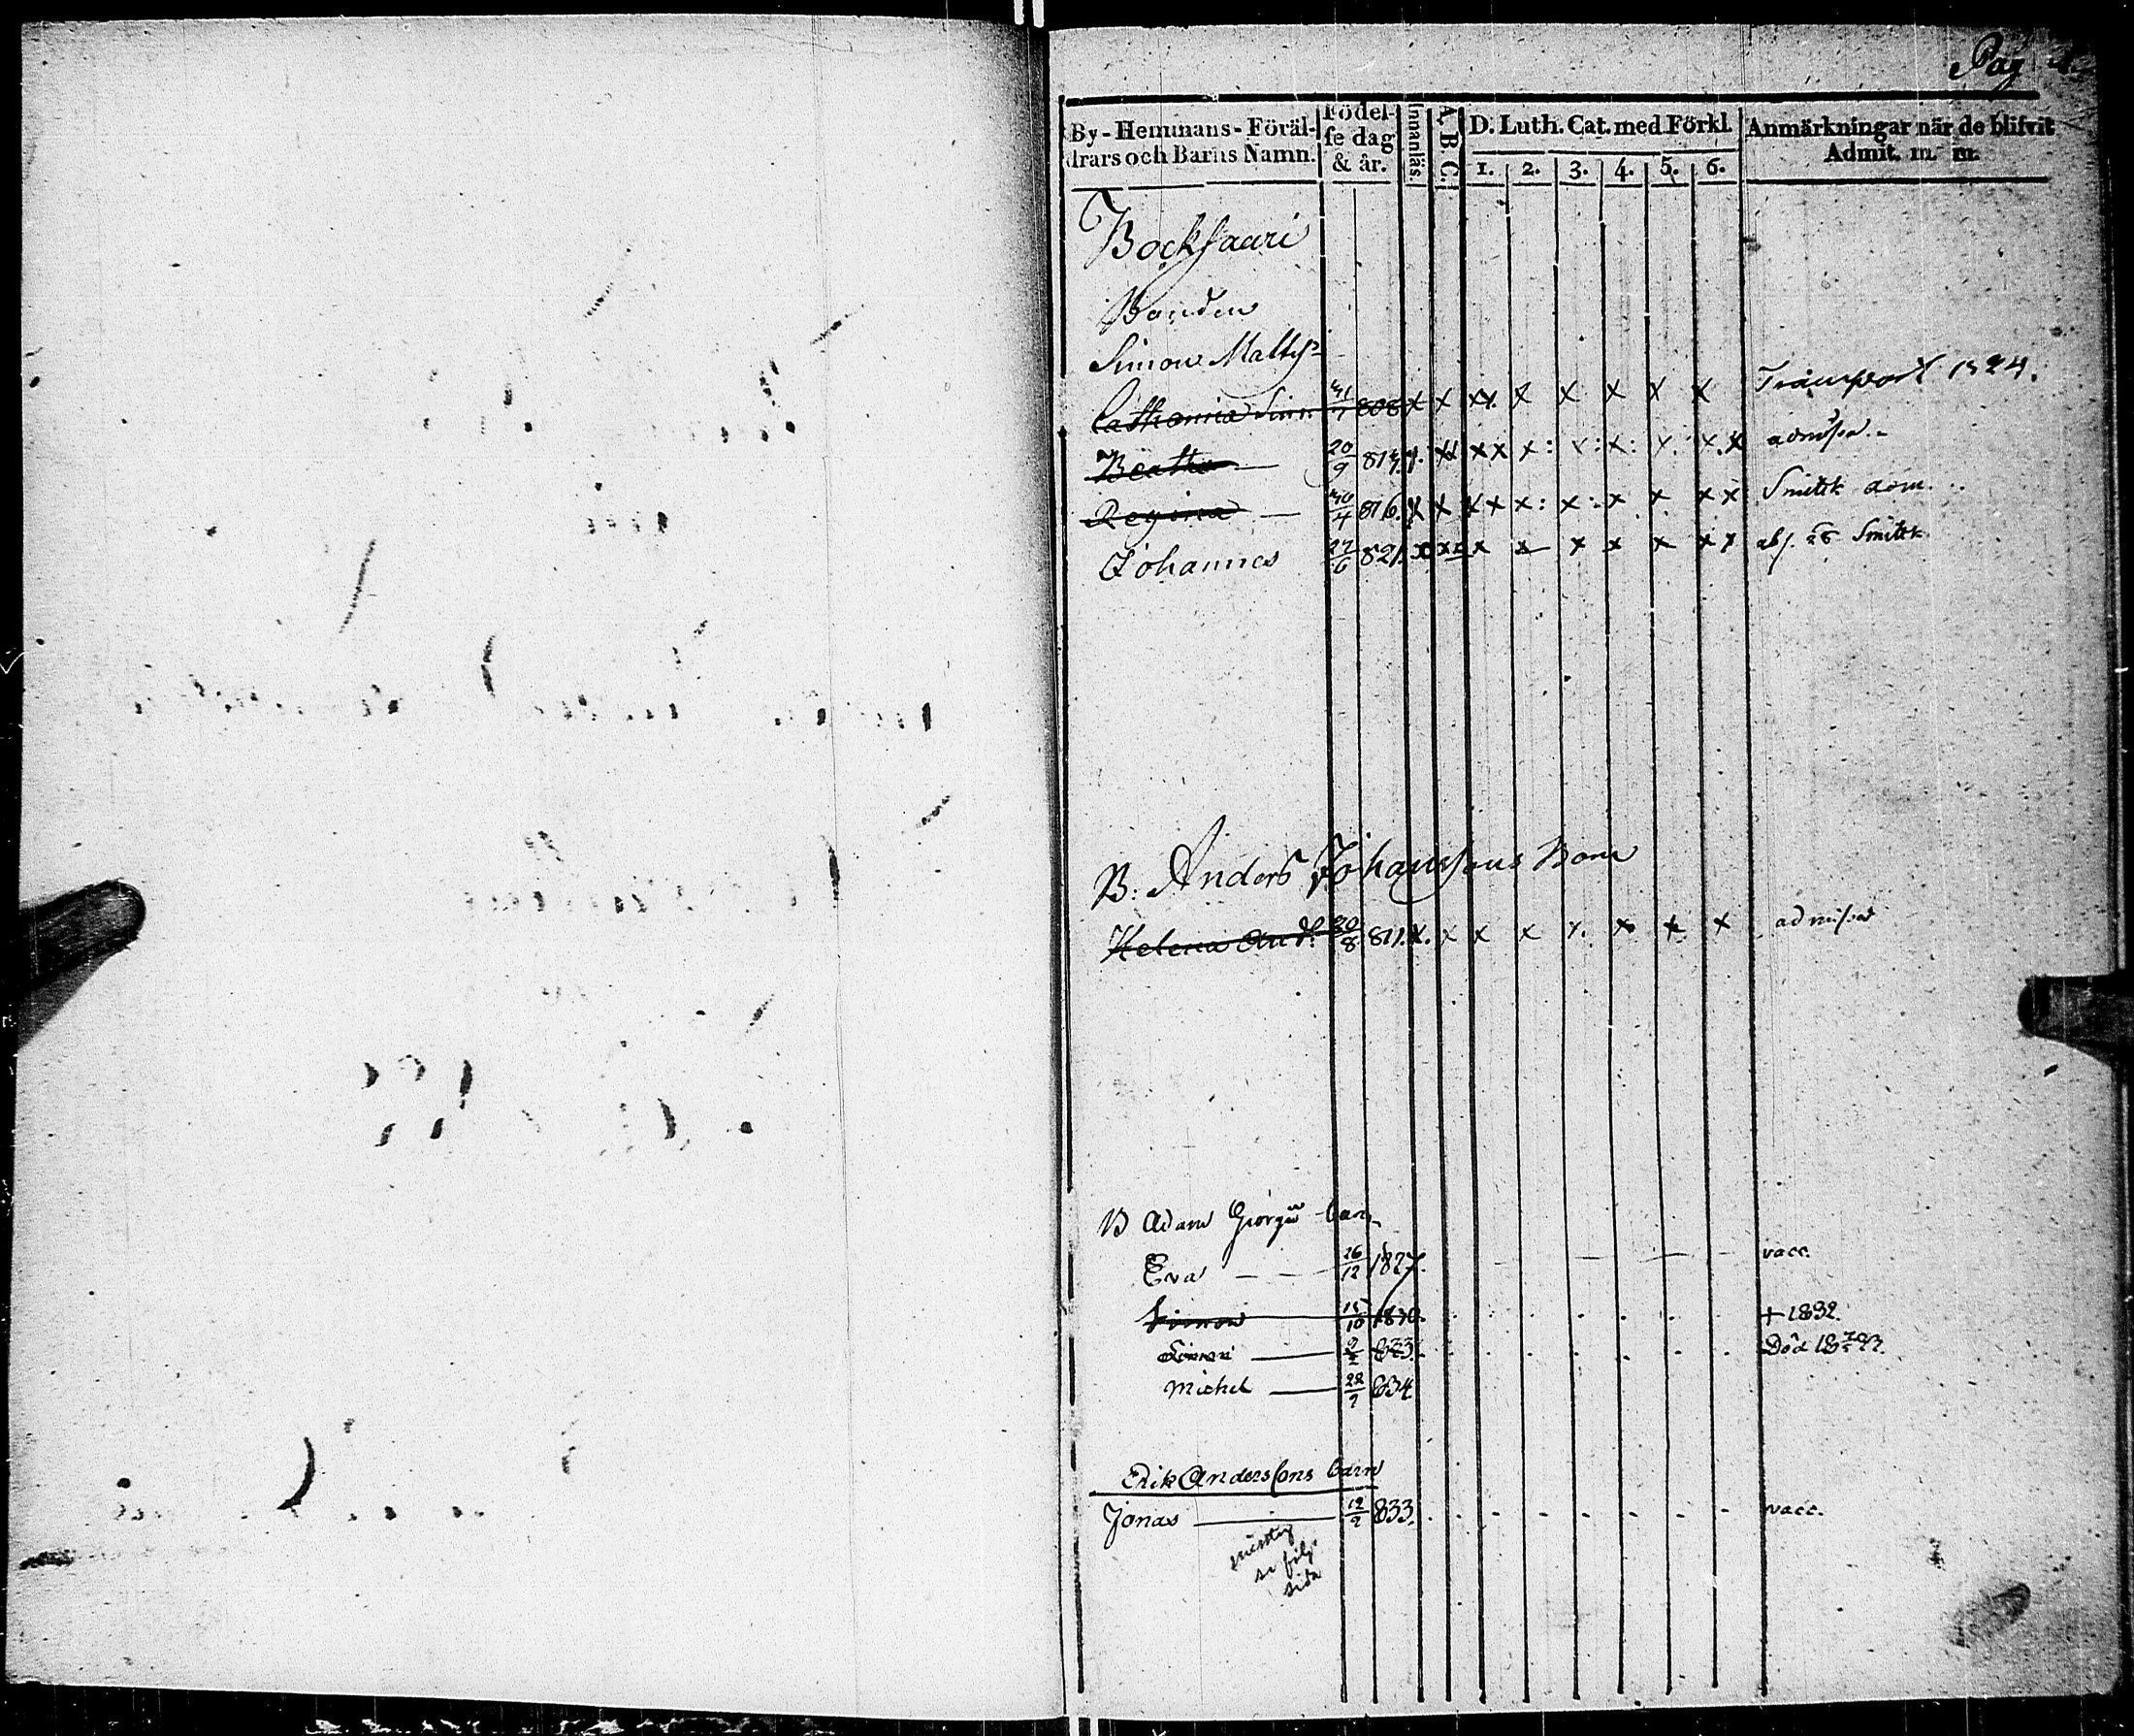 Pag
By-Hemmans-Föräl-
drars och Barns Namn.
Födel-
se dag
& år.
Innanläs.
A B C.
D. Luth. Cat. med Förkl.
1. 2. 3. 4. 5. 6.
Anmärkningar när de blifvit
Admit. m. m.
Bocksaari
Bonden
Simon Mattss
Catharina Sim. 31/7 808 x x xx. x x x x x Transport 1824.
Beatha — 20/9 814 x. xx xx x: x: x: x. x.x
Regina — 30/4 816. x x xx x: x: x x xx
Johannes 27/6 821. x xx x x x x x xx
B: Anders Johanssons Barn
Helena And. 20/8 811. x. x x x x. x x x admissa
B Adam Giörgss barn
Eva — — 26/12 1827. vacc.
Simon 15/10 1830. + 1832.
Simon — 2/2 833. Död
Michel — 22/9 834
Erik Anderssons barn
Jonas — 12/2 833. vacc.
se följ.
sida